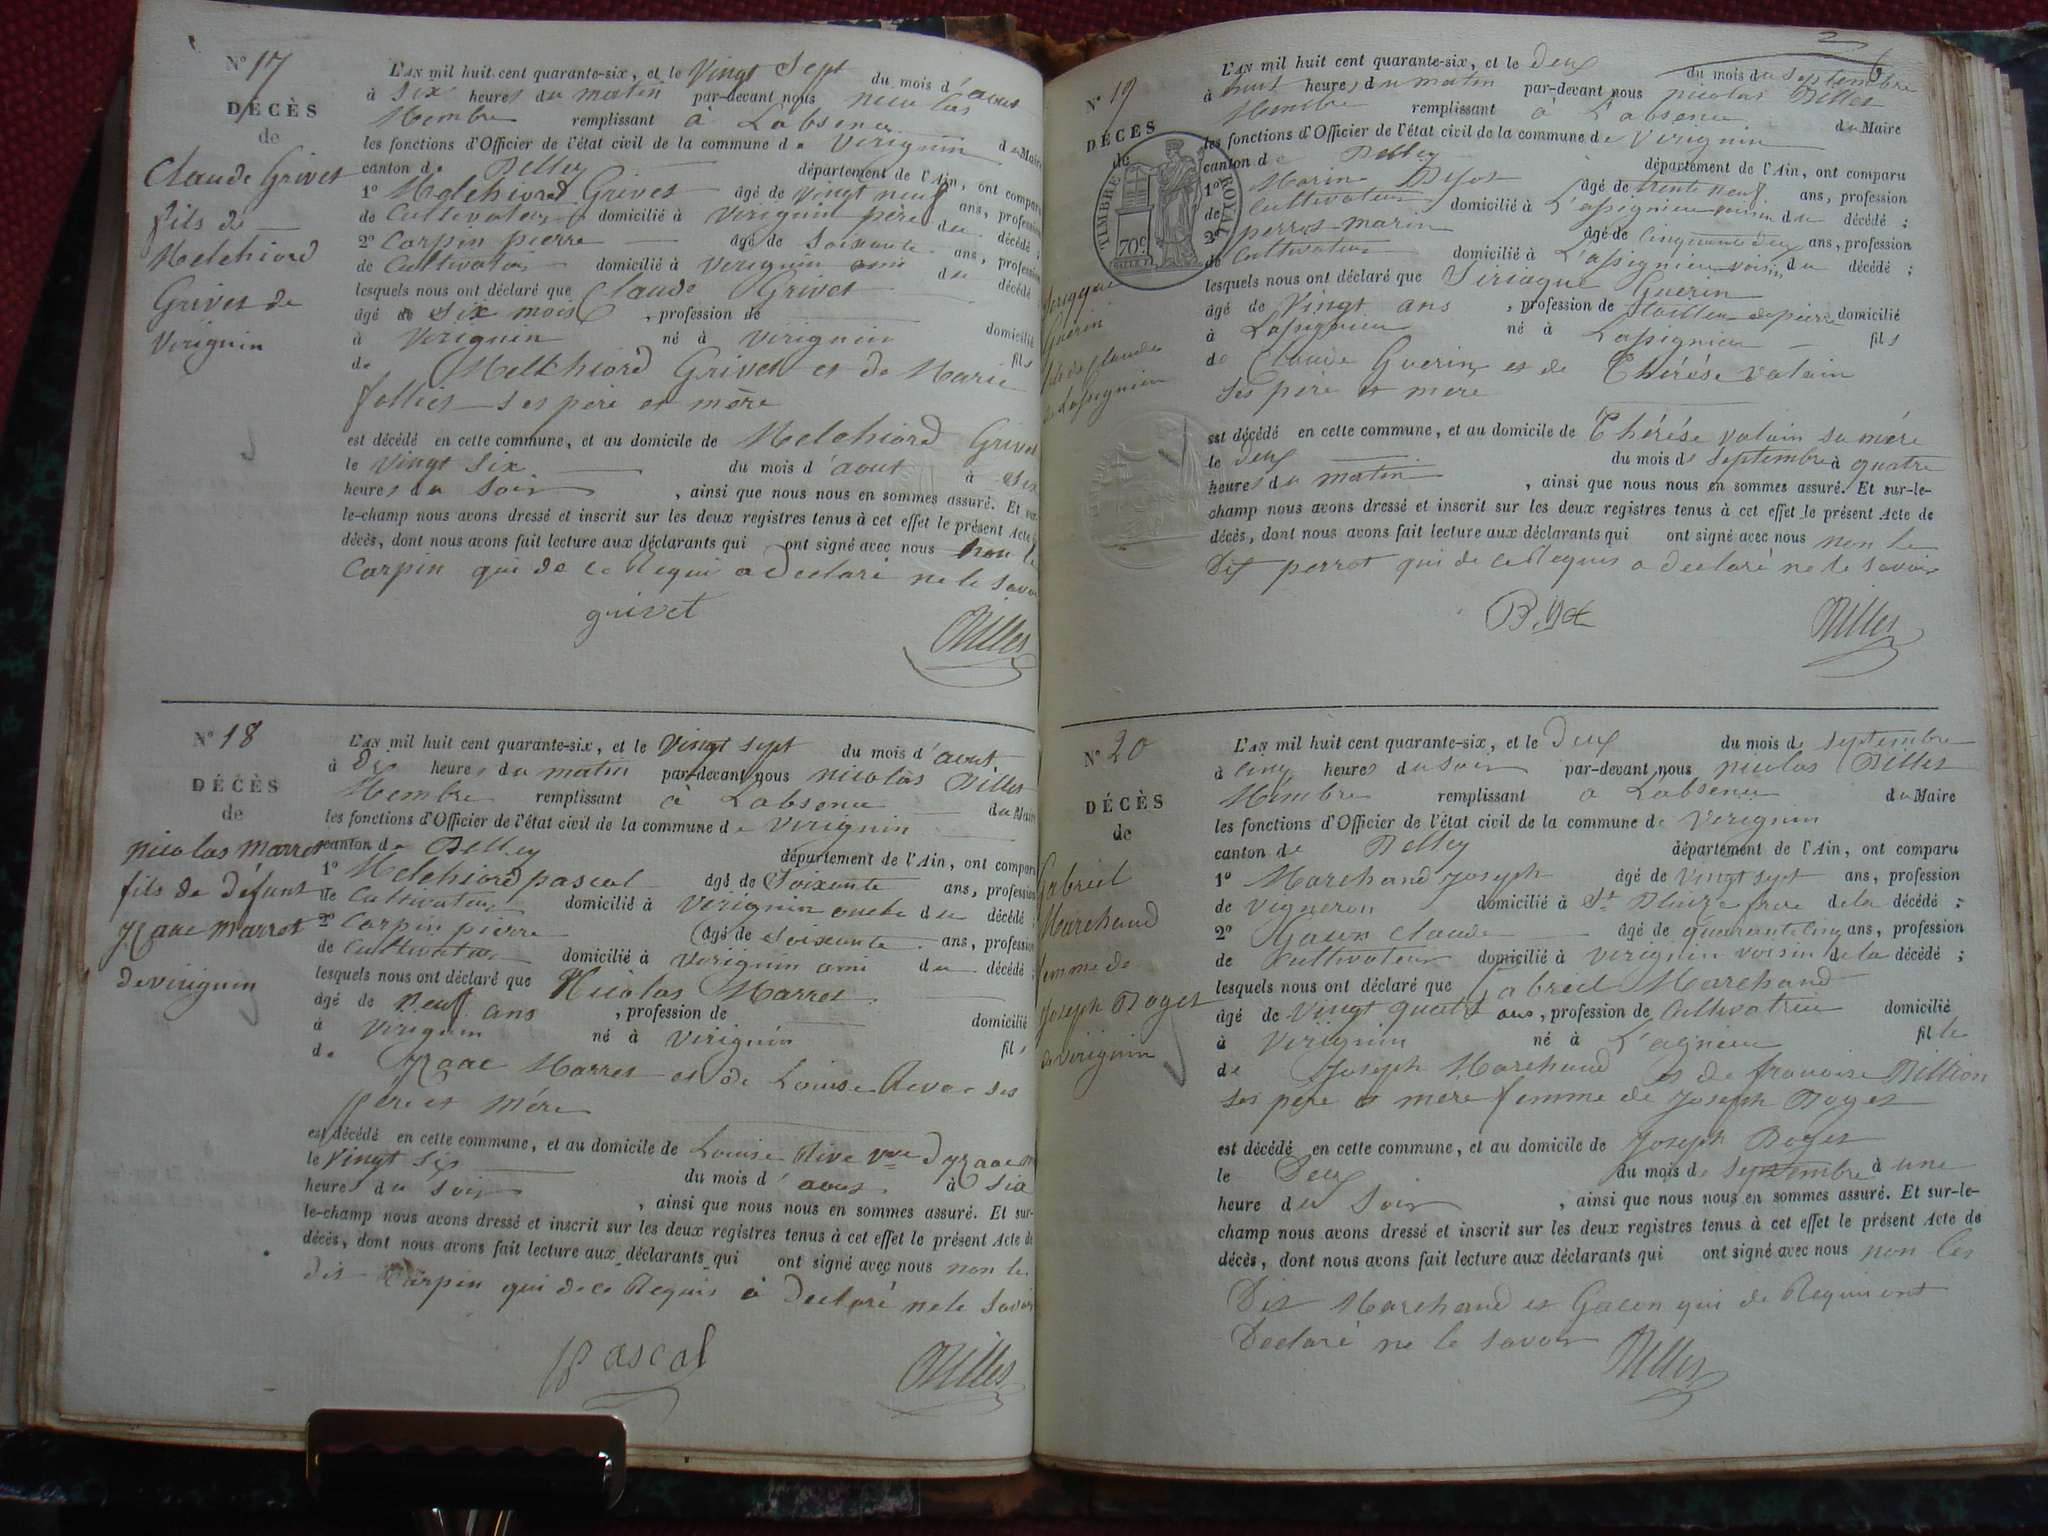 N° 17
DÉCÈS
de
Claude Grivet
fils de
Melchiord
Grivet de
Virignin
L'AN mil huit cent quarante-six, et le Vingt Sept du mois d'aout
à Six heures du matin par-devant nous nicolas
Membre remplissant à Labsence du Maire
les fonctions d'Officier de l'état civil de la commune de Virignin
canton de Belley département de l'Ain, ont comparu
1° Melchiord Grivet âgé de vingt neuf ans, profession
de Cultivateur domicilié à Virignin père du décédé ;
2° Carpin pierre âgé de Soixante ans, profession
de Cultivateur domicilié à Virignin ami du décédé
lesquels nous ont déclaré que Claude Grivet
âgé de Six mois , profession de domicilié
à Virignin né à Virignin fils
de Melchiord Grivet et de Marie
folliet ses père et mère
est décédé en cette commune, et au domicile de Melchiord Grivet
le Vingt six du mois d'aout à Six
heures du Soir , ainsi que nous nous en sommes assuré. Et sur-
le-champ nous avons dressé et inscrit sur les deux registres tenus à cet effet le présent Acte de
décès, dont nous avons fait lecture aux déclarants qui ont signé avec nous non le
Carpin qui de ce Requi a declaré ne le savoir
grivet Billet
N° 18
DÉCÈS
de
nicolas marret
fils de défunt
yzaac marret
de virignin
L'AN mil huit cent quarante-six, et le Vingt sept du mois d'aout
à Dix heures du matin par-devant nous nicolas Billet
Membre remplissant à Labsence du Maire
les fonctions d'Officier de l'état civil de la commune de Virignin
canton de Belley département de l'Ain, ont comparu
1° Melchiord pascal âgé de Soixante ans, profession
de Cultivateur domicilié à Virignin oncle du décédé ;
2° Carpin pierre âgé de Soixante ans, profession
de Cultivateur domicilié à Virignin ami du décédé ;
lesquels nous ont déclaré que Nicolas Marret
âgé de neuf ans , profession de domicilié
à Virignin né à Virignin fils
de Yzaac Marret et de Louise Reve ses
père et mère
est décédé en cette commune, et au domicile de Louise Rive Vve d'yzaac M
le Vingt Six du mois d'aout à Six
heures du Soir , ainsi que nous nous en sommes assuré. Et sur-
le-champ nous avons dressé et inscrit sur les deux registres tenus à cet effet le présent Acte de
décès, dont nous avons fait lecture aux déclarants qui ont signé avec nous non le
dit Carpin qui de ce Requis a Declaré ne le Savoir
Pascal Billet
N° 19
DÉCÈS
de
TIMBRE ROYAL
70c
Guerin
fils de Claude
de Lassignieu
L'AN mil huit cent quarante-six, et le deux du mois de Septembre
à huit heures du matin par-devant nous nicolas Billet
Membre remplissant à Labsence du Maire
les fonctions d'Officier de l'état civil de la commune de Virignin
canton de Belley département de l'Ain, ont comparu
1° Marin âgé de trente neuf ans, profession
de Cultivateur domicilié à L'assignieu voisin du décédé ;
2° perrot marin âgé de Cinquante deux ans, profession
de Cultivateur domicilié à L'assignieu voisin du décédé ;
lesquels nous ont déclaré que Siriaque Guerin
âgé de Vingt ans , profession de tailleur de pierre domicilié
à Lassignieu né à Lassignieu fils
de Claude Guerin et de Thérèse Valain
Ses père et mère
est décédé en cette commune, et au domicile de Thérèse Valain sa mère
le deux du mois de Septembre à quatre
heures du matin , ainsi que nous nous en sommes assuré. Et sur-le-
champ nous avons dressé et inscrit sur les deux registres tenus à cet effet le présent Acte de
décès, dont nous avons fait lecture aux déclarants qui ont signé avec nous non le
Dit perrot qui de ce Requis a declaré ne le savoir
Billet
N° 20
DÉCÈS
de
Gabriel
Marchand
femme de
Joseph Boget
de virignin
L'AN mil huit cent quarante-six, et le Deux du mois de Septembre
à Cinq heures du soir par-devant nous nicolas Billet
Membre remplissant à Labsence du Maire
les fonctions d'Officier de l'état civil de la commune de Virignin
canton de Belley département de l'Ain, ont comparu
1° Marchand Joseph âgé de Vingt sept ans, profession
de Vigneron domicilié à St frere de la décédé ;
2° Gacon Claude âgé de quarante cinq ans, profession
de Cultivateur domicilié à Virignin voisin de la décédé ;
lesquels nous ont déclaré que Gabreil Marchand
âgé de Vingt quatre ans, profession de Cultivatrice domicilié
à Virignin né à L'agnieu fille
de Joseph Marchand et de francoise Billion
Ses père et mère femme de Joseph Boget
est décédé en cette commune, et au domicile de Joseph Boget
le Deux du mois de Septembre à une
heure du Soir , ainsi que nous nous en sommes assuré. Et sur-le-
champ nous avons dressé et inscrit sur les deux registres tenus à cet effet le présent Acte de
décès, dont nous avons fait lecture aux déclarants qui ont signé avec nous non les
Dit Marchand et Gacon qui de Requi ont
Declaré ne le savoir Billet